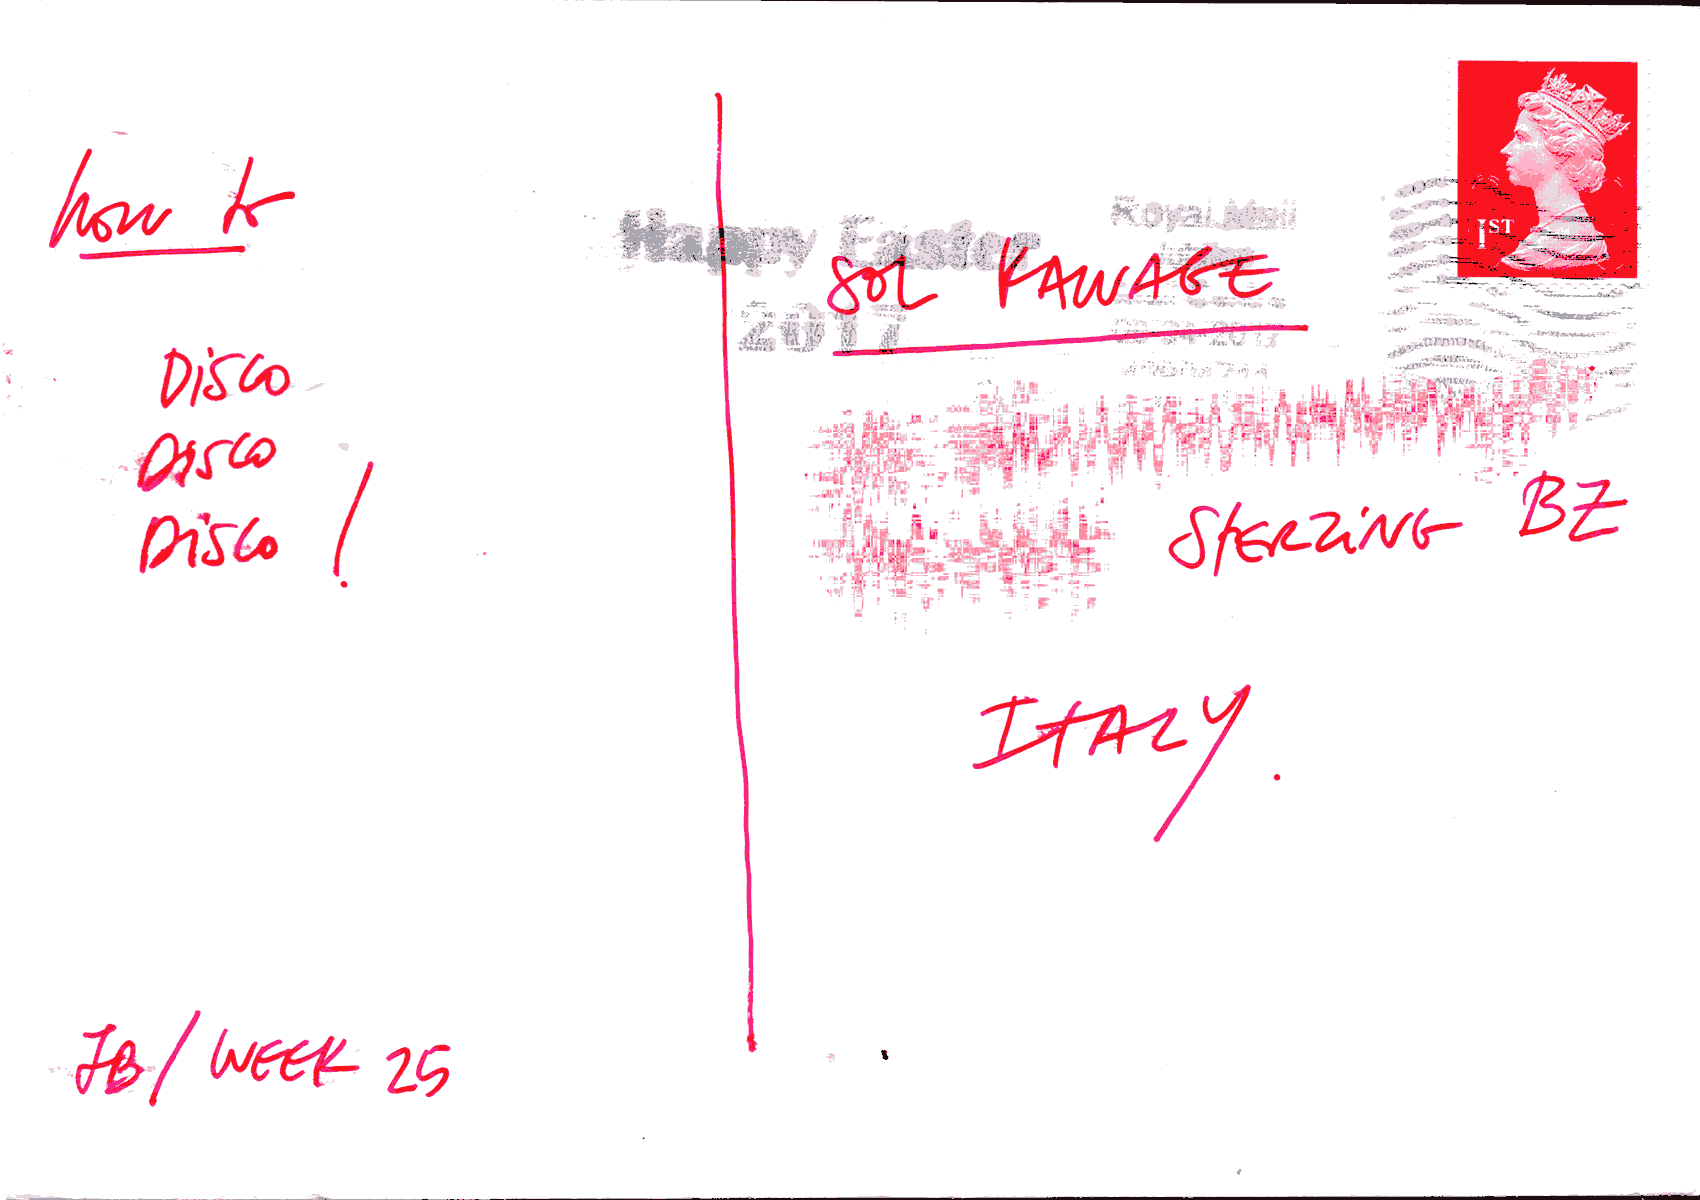 how to
Disco
Disco
Disco !
JB / WEEK 25
Happy Easter
2017
Royal Mail
1ST
SOL KAWAGE
STERZING BZ
ITALY.